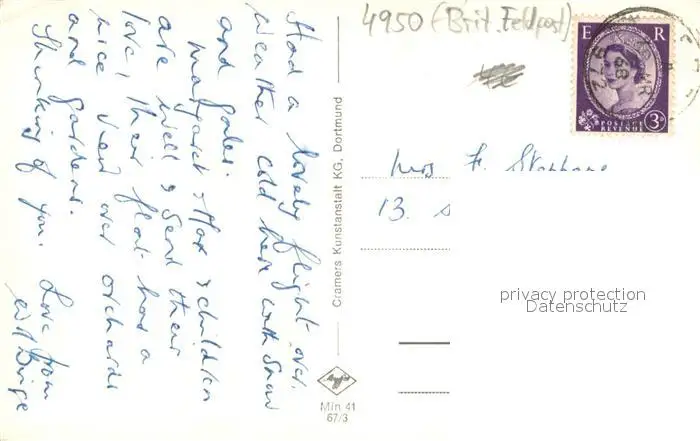 Had a lovely flight over.
Weather cold here with snow
and gales.
Margaret & Max & children
are well & send their
love, their flat has a
nice view over orchards
and gardens.
Thinking of you. Love from
4950 (Brit. Feldpost)
E R
POSTAGE
REVENUE 3D
MR
68
Mrs F. Stephens
13.
privacy protection
Datenschutz
Cramers Kunstanstalt KG, Dortmund
Min 41
67/3